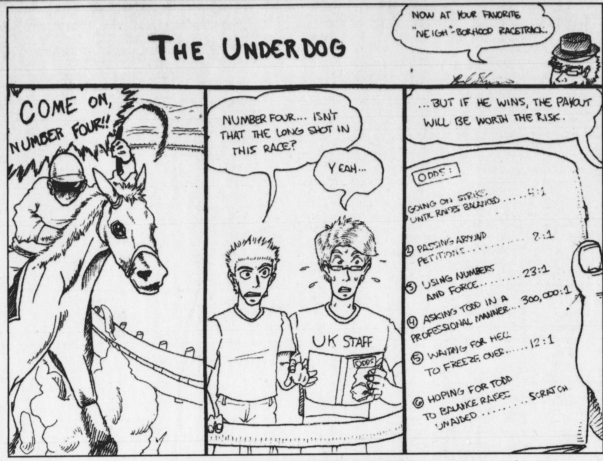 THE UNDERDOG
NOW AT YOUR FAVORITE
"NEIGH"-BORHOOD RACETRACK.
COME ON,
NUMBER FOUR!!
NUMBER FOUR... ISN'T
THAT THE LONG SHOT IN
THIS RACE?
YEAH...
UK STAFF
ODDS
...BUT IF HE WINS, THE PAYOUT
WILL BE WORTH THE RISK.
ODDS:
GOING ON STRIKE
UNTIL RAISES BALANCED
② PASSING AROUND
PETITIONS ......... 2:1
③ USING NUMBERS
AND FORCE ........ 23:1
④ ASKING TODD IN A
PROFESSIONAL MANNER... 300,000:1
⑤ WAITING FOR HELL
TO FREEZE OVER ...... 12:1
⑥ HOPING FOR TODD
TO BALANCE RAISES
UNAIDED .......... SCRATCH